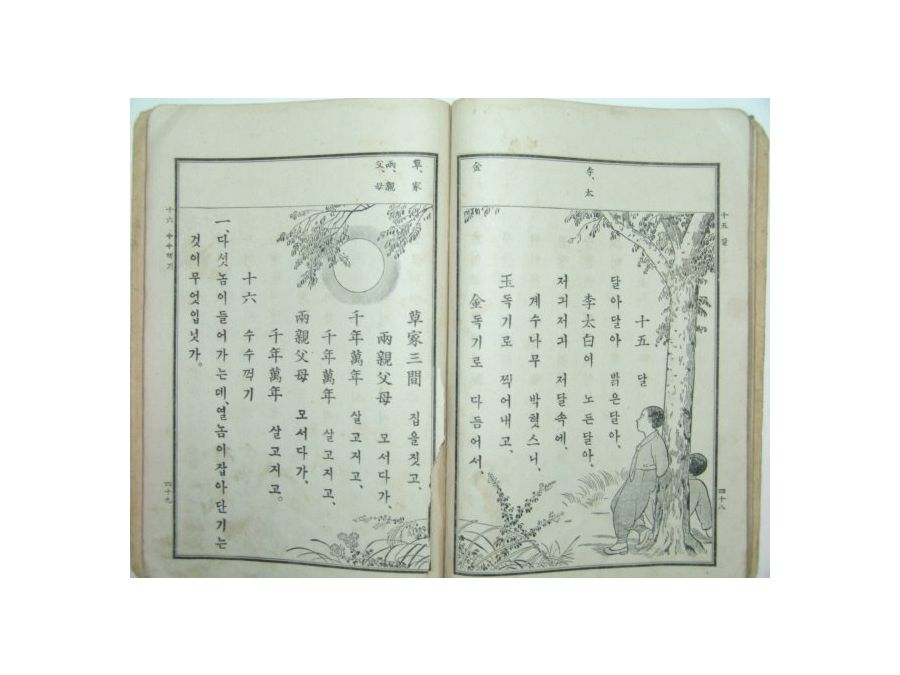 十五 달
四十八
李、太
金
十五 달
달아달아 밝은달아、
李太白이 노든달아、
저긔저긔 저달속에、
계수나무 박혓스니、
玉독기로 찍어내고、
金독기로 다듬어서、
草、家
兩、親
父、母
草家三間 집을짓고、
兩親父母 모서다가、
千年萬年 살고지고、
千年萬年 살고지고、
兩親父母 모서다가、
千年萬年 살고지고。
十六 수수꺽기
一、다섯놈이들어가는데、열놈이잡아단기는
것이무엇입닛가。
十六 수수꺽기
四十九